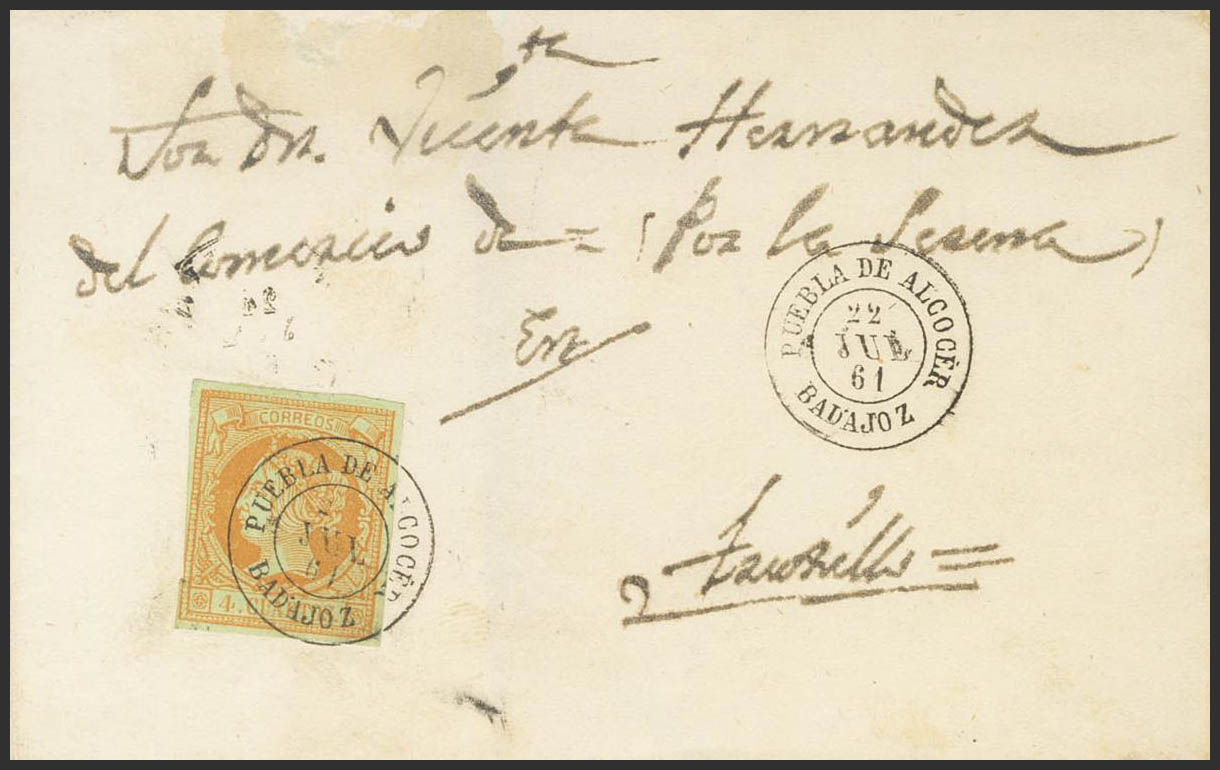 Sor Dn. Vicente Hernandez
del Comercio de = (Por la Serena)
En
Truxillo =
PUEBLA DE ALGOCÉR
22
JUL
61
BADAJOZ
CORREOS
PUEBLA DE ALGOCÉR
JUL
61
BADAJOZ
4